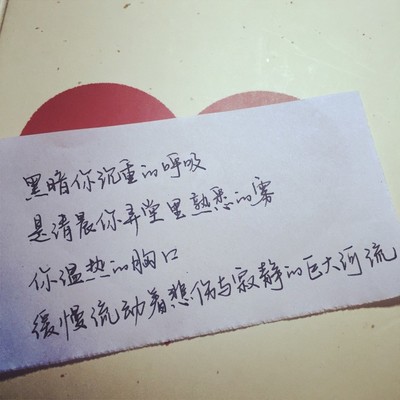 黑暗你沉重的呼吸
是清晨你弄堂里熟悉的雾
你温热的胸口
缓慢流动着悲伤与寂静的巨大河流